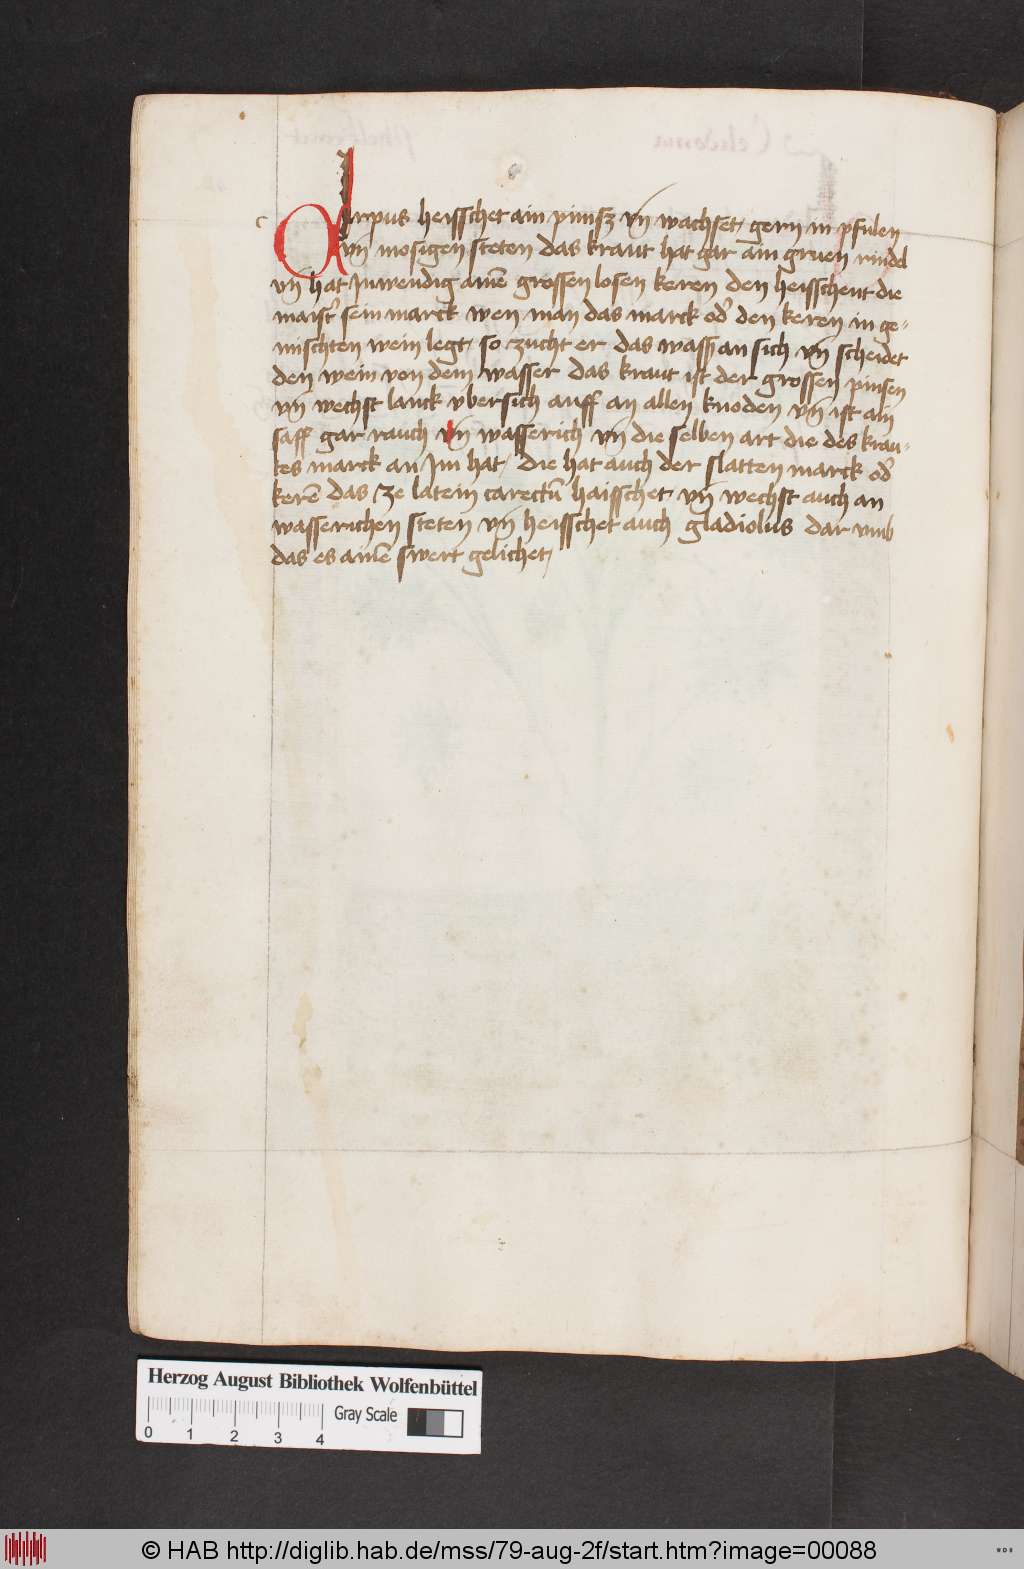 Cirpus heisschet ain pimsz vn̄ wachset gern in pfulen
vn̄ mosigen steten das kraut hat gar ain gruen rindel
vn̄ hat Inwendig ainē grossen losen keren den heisschent die
maistr̄ sein marck wen man das marck od̄ den keren in ge-
mischten wein legt so zucht er das wass̄ an sich vn̄ scheidet
den wein von dem wasser das kraut ist der grossen pinsen
vn̄ wechst lanck vbersich auff an allen knoden vn̄ ist ain
saff gar rauch vn̄ wasserich vn̄ die selben art die des krau-
tes marck an Im hat die hat auch der slatten marck od̄
kerē das ze latein carectū haisschet vn̄ wechst auch an
wasserichen steten vn̄ heisschet auch gladiolus dar vmb
das es ainē swert gelichet
Herzog August Bibliothek Wolfenbüttel
Gray Scale
0 1 2 3 4
© HAB http://diglib.hab.de/mss/79-aug-2f/start.htm?image=00088